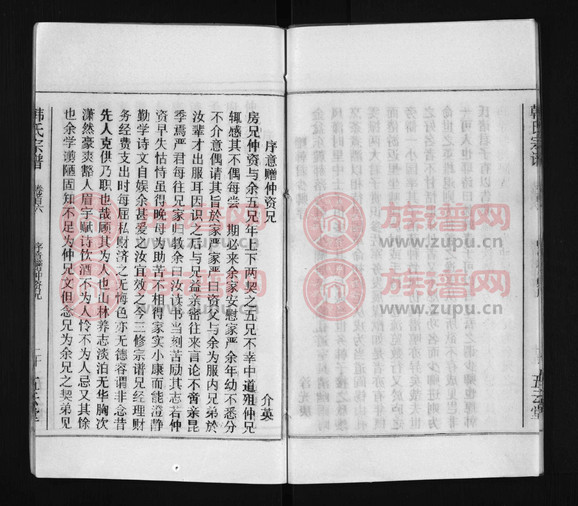 序意赠仲资兄
介英
房兄仲资与余五兄年上下两契之五兄不幸中道殂仲兄
辄感其不偶每尝一期必来余家安慰家严余年幼不悉分
不介意偶请其旨於家严家严曰资父与余为服内兄弟於
汝辈才出服耳因识之后与兄益亲密往来言论不啻亲昆
季焉严君每往兄家归教余曰汝读书当刻苦励其志若仲
资早失怙恃虽得晚母为助苦不相得家实小康而能澄静
勤学诗文自娱余甚爱之汝宜效之今三修宗谱兄经理财
务经费支出时每屈私财济之无悔色亦无德容谓非念昔
先人克供乃职也哉顾其为人也山林养志淡泊无华胸次
潇然豪爽豁人眉宇赋诗饮酒不为人怜不为人忌又其馀
也余学谫陋固知不足为仲兄文但念兄为余兄之契弟兄
韩氏宗谱
卷首六
序意赠仲资兄
五云堂
韩氏宗谱
五云堂
族谱网
www.zupu.cn
族谱网
www.zupu.cn
族谱网
www.zupu.cn
族谱网
www.zupu.cn